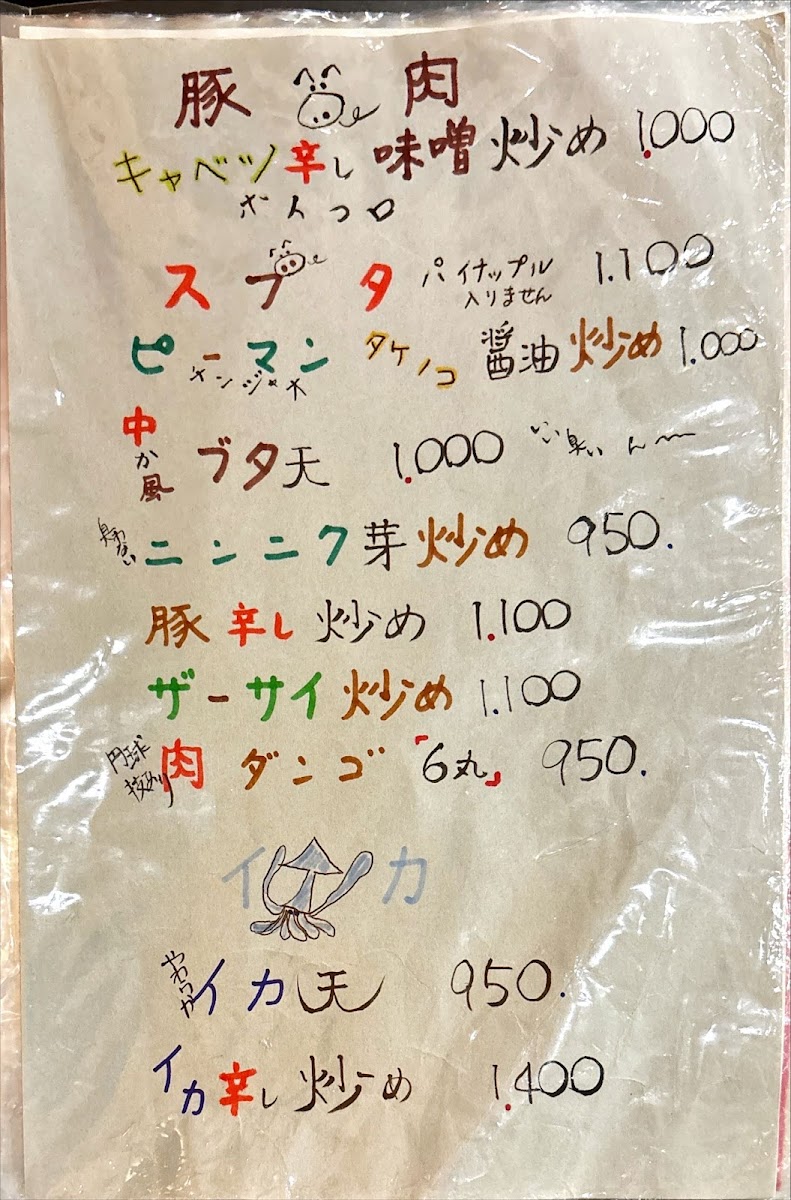 豚肉
キャベツ辛し味噌炒め 1.000
ホイコロ
スブタ パイナップル入りません 1.100
ピーマン タケノコ 醤油炒め 1.000
チンジャオ
中か風 ブタ天 1.000
ニンニク芽炒め 950.
豚辛し炒め 1.100
ザーサイ炒め 1.100
肉ダンゴ「6丸」 950.
イカ
やわらかイカ天 950.
イカ辛し炒め 1.400